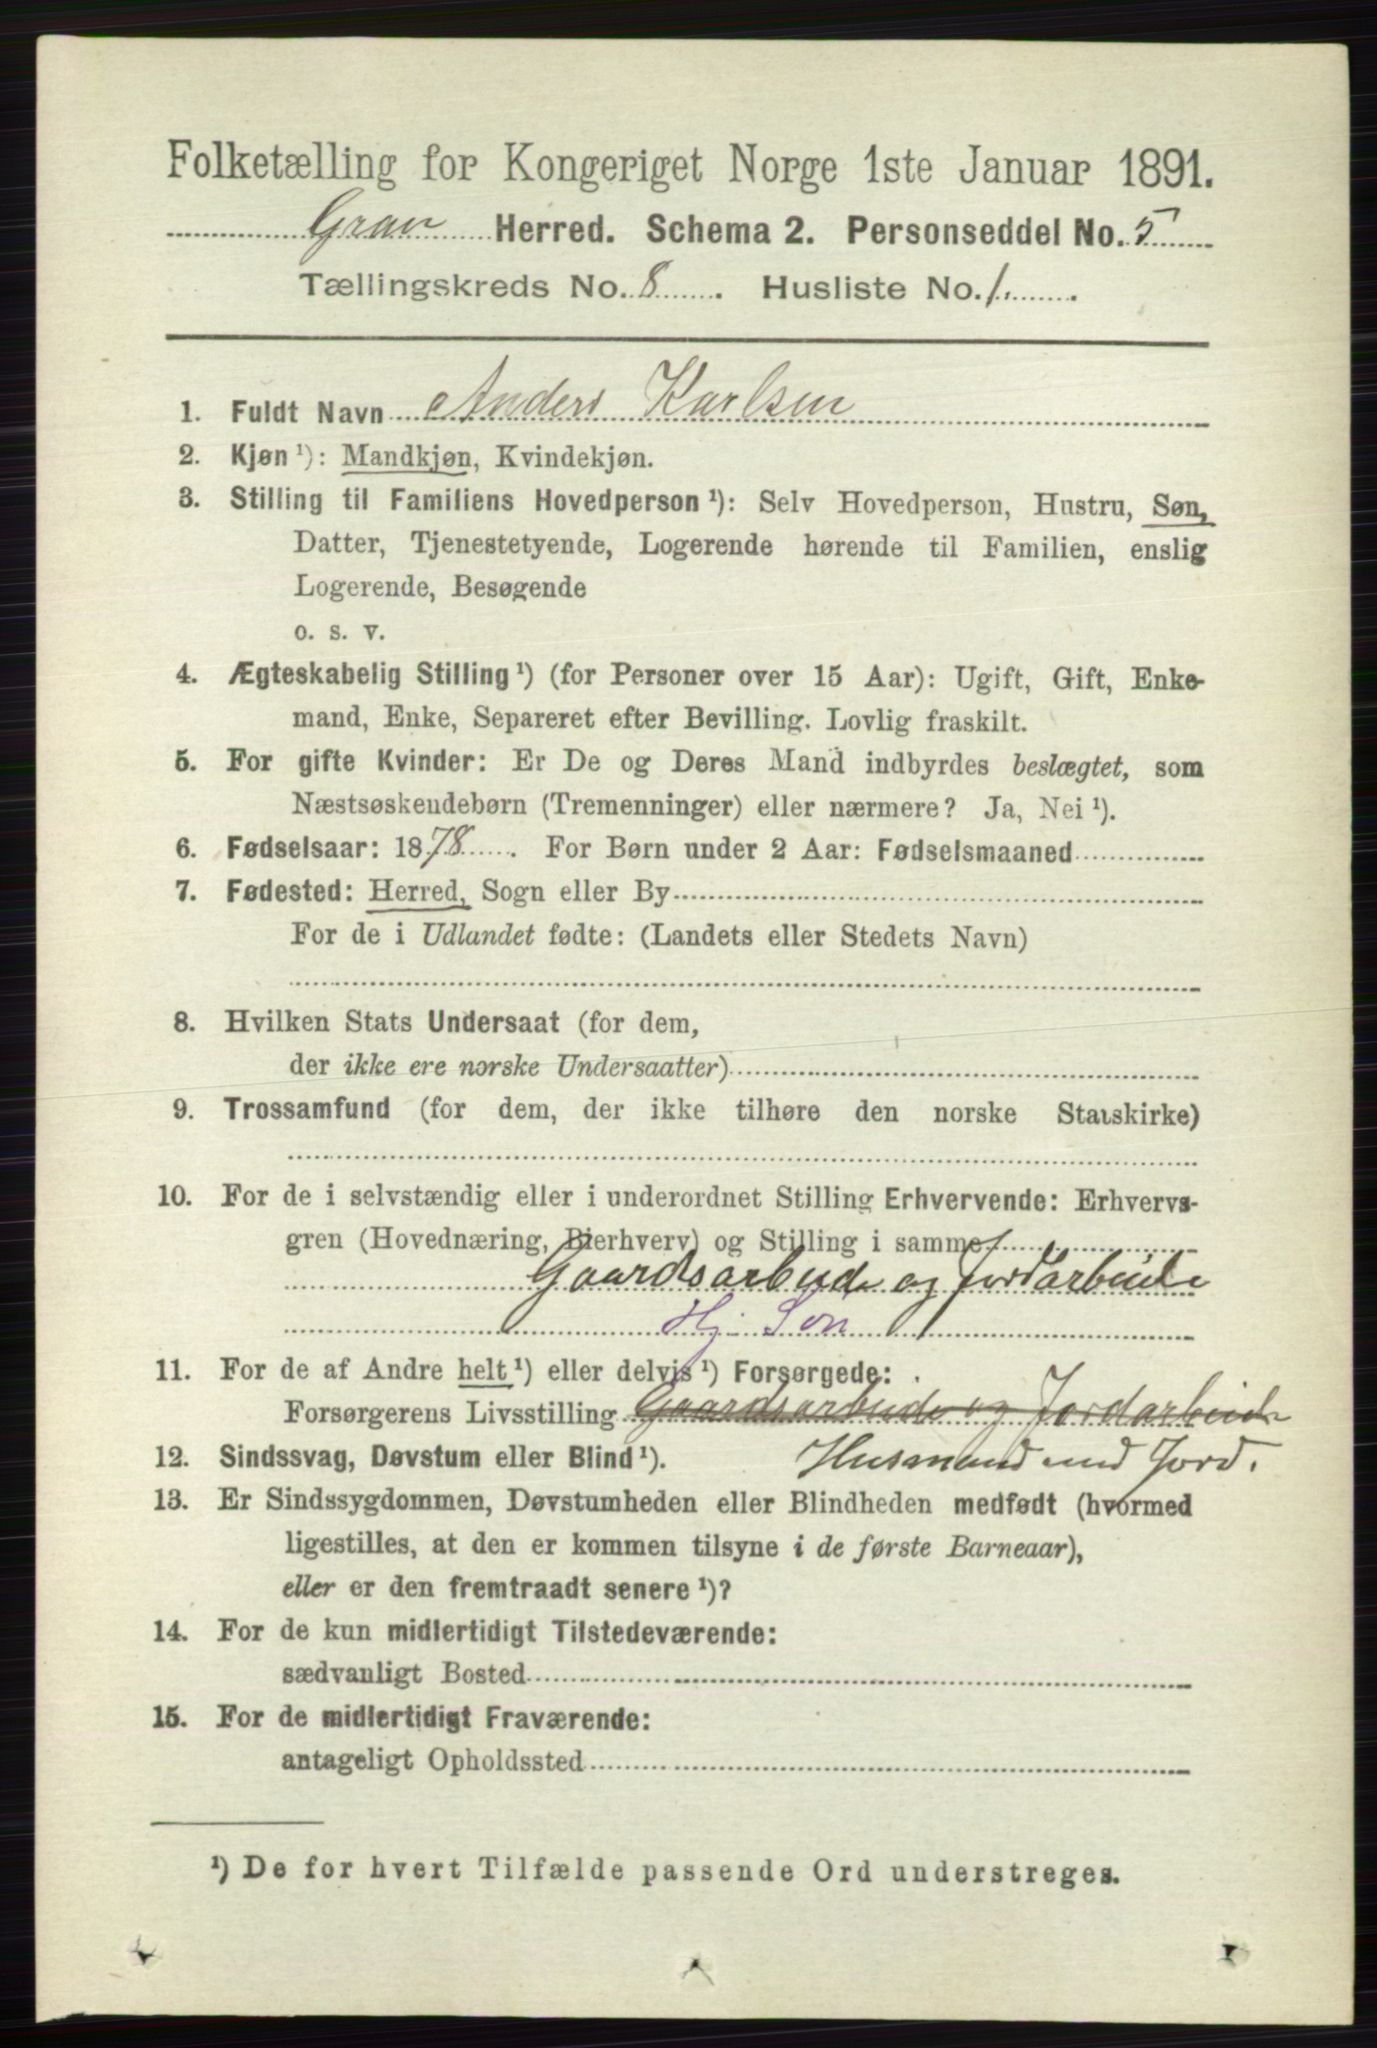 Folketælling for Kongeriget Norge 1ste Januar 1891.
Gran Herred. Schema 2. Personseddel No. 5
Tællingskreds No. 8. Husliste No. 1.
1. Fuldt Navn Anders Karlsen
2. Kjøn¹): Mandkjøn, Kvindekjøn.
3. Stilling til Familiens Hovedperson¹): Selv Hovedperson, Hustru, Søn,
Datter, Tjenestetyende, Logerende hørende til Familien, enslig
Logerende, Besøgende
o. s. v.
4. Ægteskabelig Stilling¹) (for Personer over 15 Aar): Ugift, Gift, Enke-
mand, Enke, Separeret efter Bevilling. Lovlig fraskilt.
5. For gifte Kvinder: Er De og Deres Mand indbyrdes beslægtet, som
Næstsøskendebørn (Tremenninger) eller nærmere? Ja, Nei¹).
6. Fødselsaar: 1878. For Børn under 2 Aar: Fødselsmaaned
7. Fødested: Herred, Sogn eller By
For de i Udlandet fødte: (Landets eller Stedets Navn)
8. Hvilken Stats Undersaat (for dem,
der ikke ere norske Undersaatter)
9. Trossamfund (for dem, der ikke tilhøre den norske Statskirke)
10. For de i selvstændig eller i underordnet Stilling Erhvervende: Erhvervs-
gren (Hovednæring, Bierhverv) og Stilling i samme
Gaardsarbeide og Jordarbeide
Hj. Søn
11. For de af Andre helt¹) eller delvis¹) Forsørgede:
Forsørgerens Livsstilling Gaardsarbeide og Jordarbeide
12. Sindssvag, Døvstum eller Blind¹). Husmand med Jord.
13. Er Sindssygdommen, Døvstumheden eller Blindheden medfødt (hvormed
ligestilles, at den er kommen tilsyne i de første Barneaar),
eller er den fremtraadt senere¹)?
14. For de kun midlertidigt Tilstedeværende:
sædvanligt Bosted
15. For de midlertidigt Fraværende:
antageligt Opholdssted
¹) De for hvert Tilfælde passende Ord understreges.